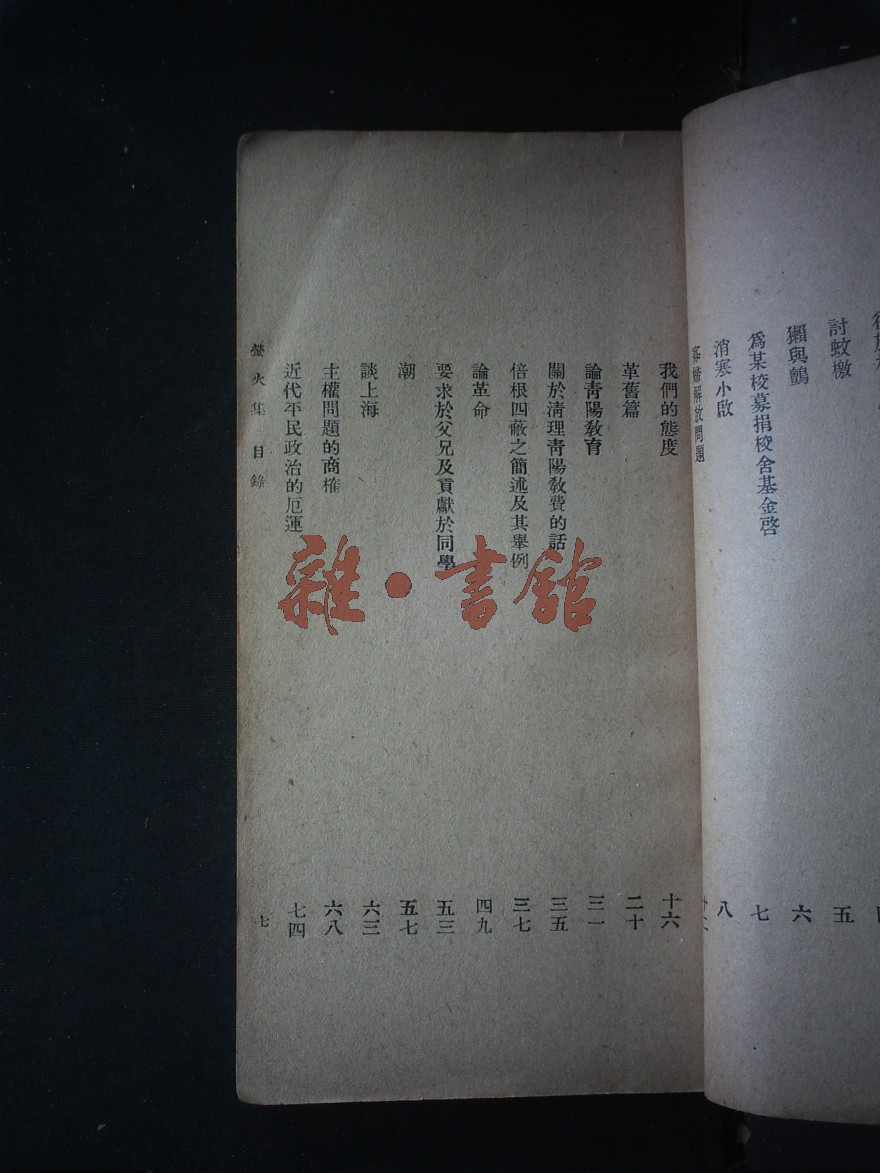 討蚊檄
五
獺與鷧
六
爲某校募捐校舍基金啓
七
消寒小啟
八
解放問題
我們的態度
十六
革舊篇
二十
論靑陽敎育
三一
關於淸理靑陽敎費的話
三五
倍根四蔽之簡述及其舉例
三七
論革命
四九
要求於父兄及貢獻於同學
五三
潮
五七
談上海
六三
主權問題的商榷
六八
近代平民政治的厄運
七四
螢火集 目錄
七
雜·書館